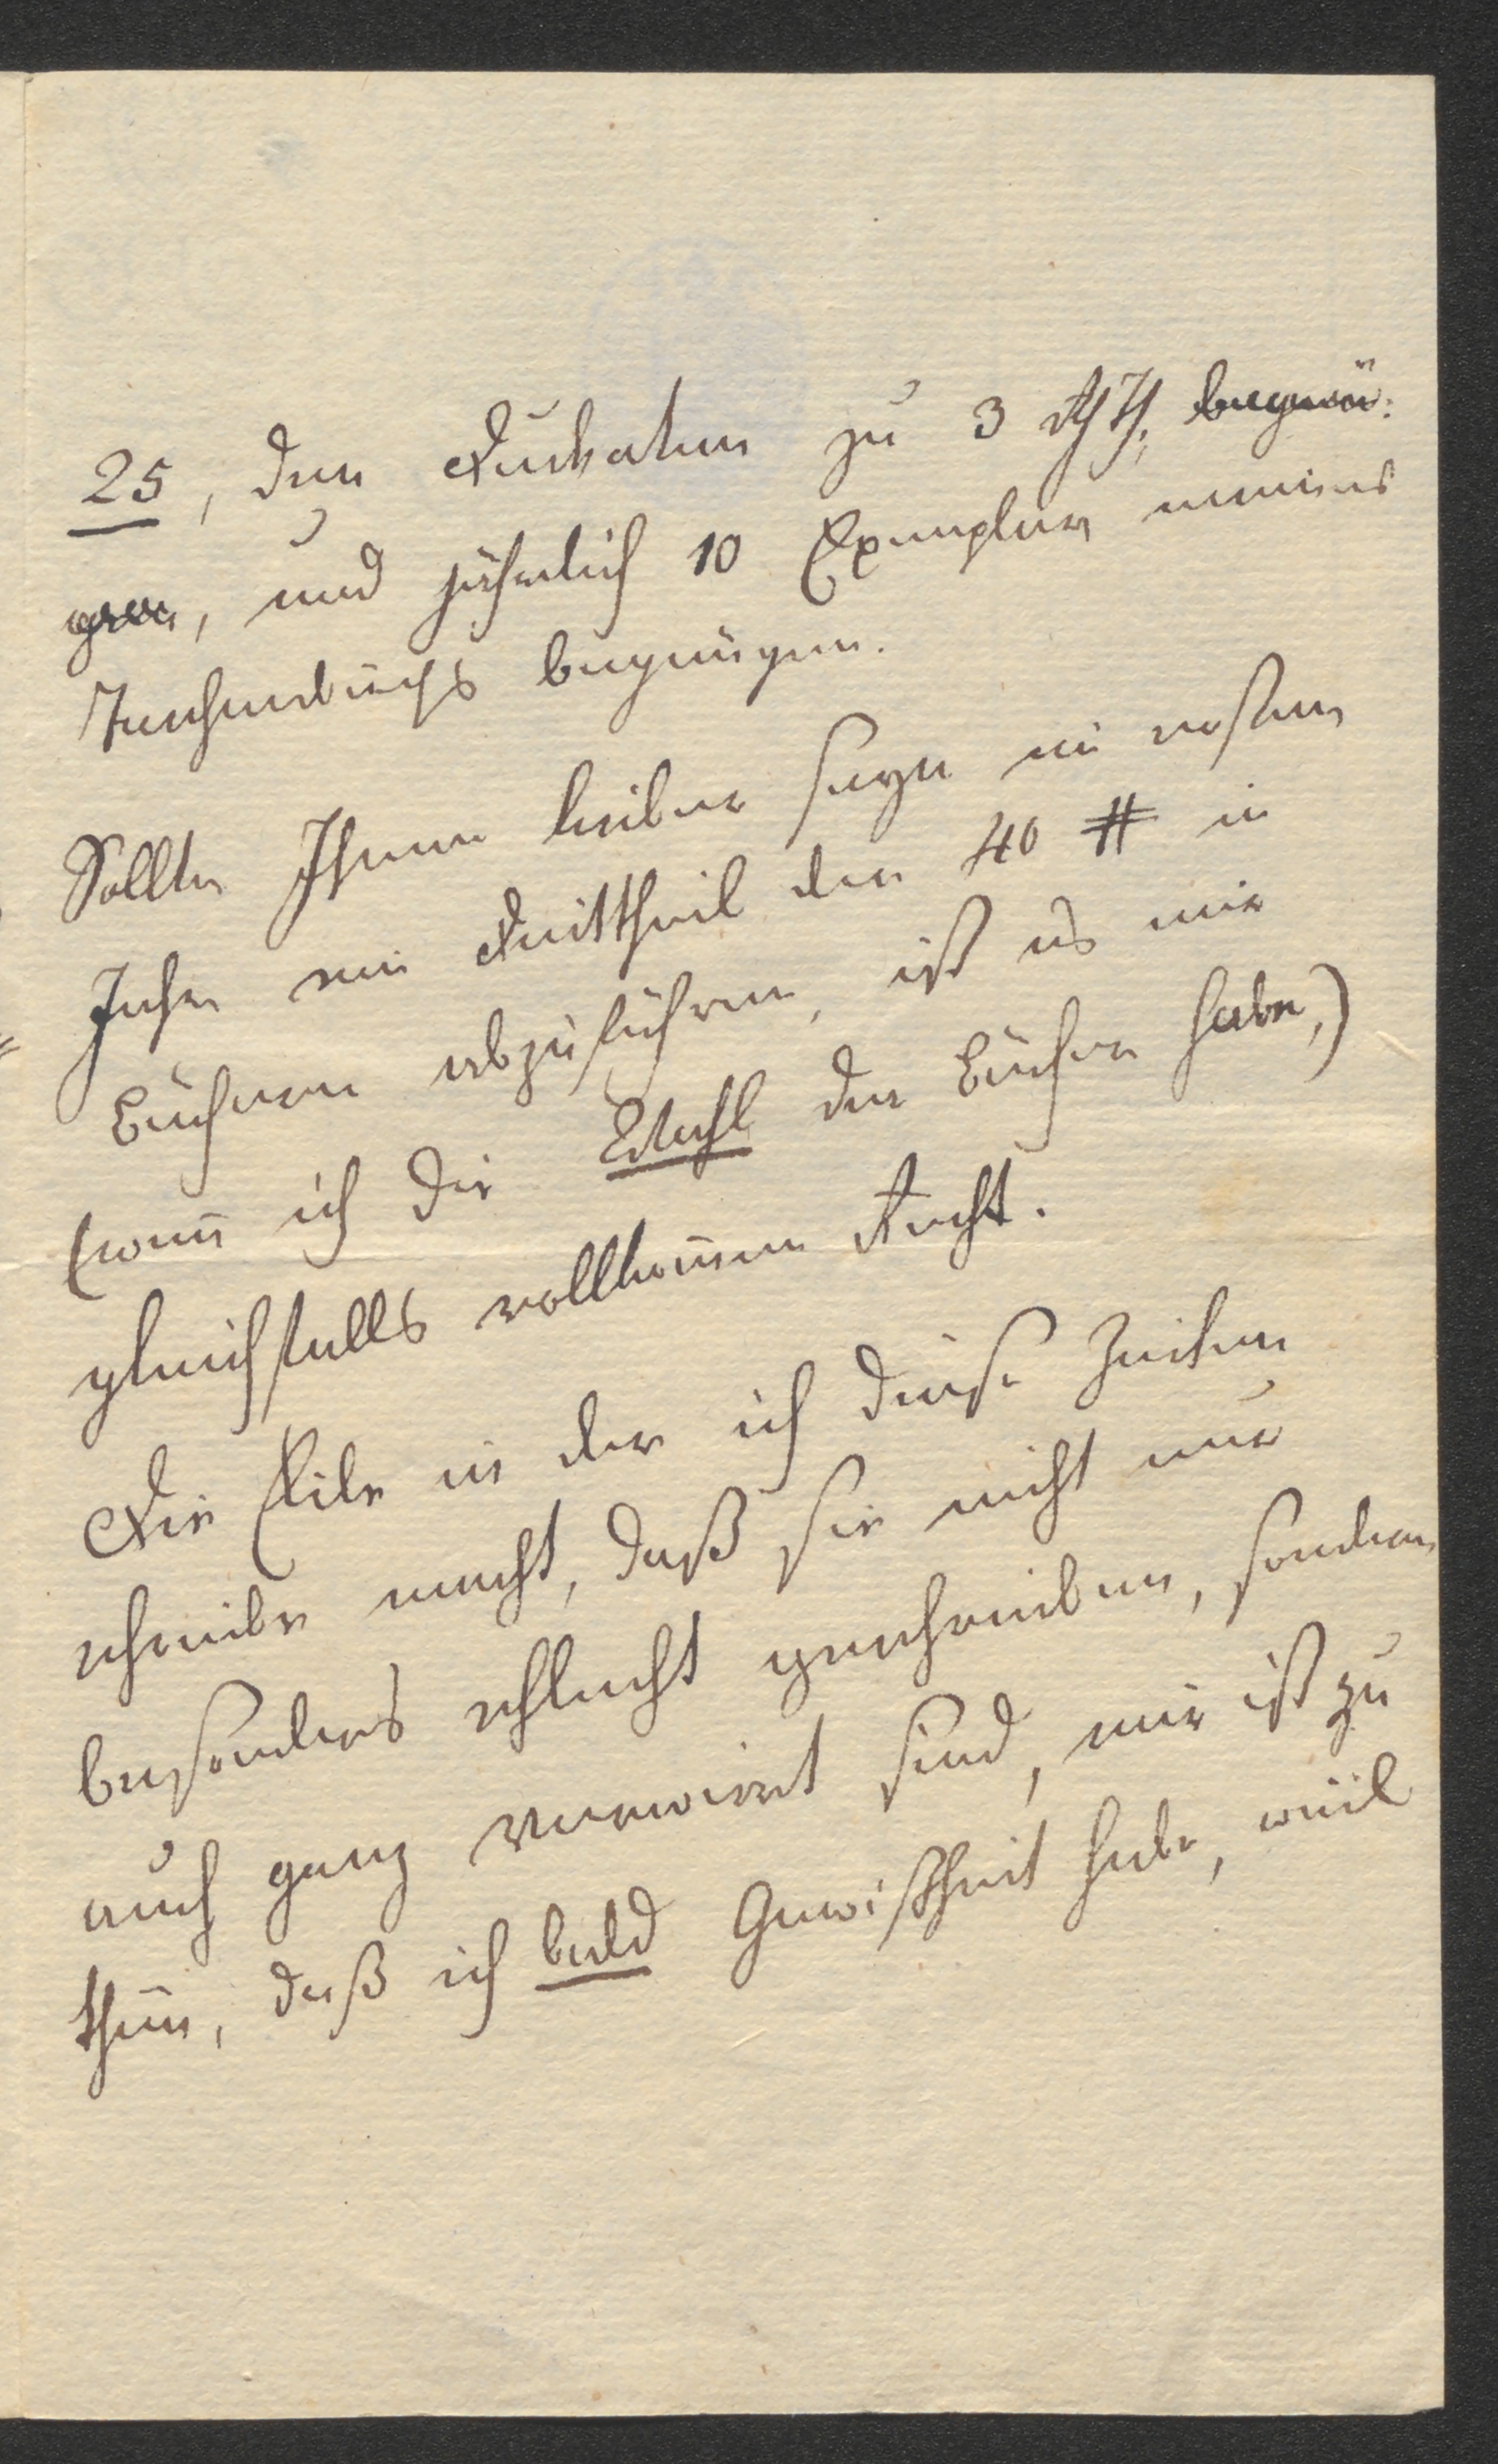 25, den Dukaten zu 3 rth, begnü:
gen, und jährlich 10 Exemplar meines
Taschenbuchs begnügen.
Sollte Ihnen lieber seyn im ersten
Jahr ein Drittheil der 40 # in
Büchern abzuführen, ist es mir
(wenn ich die Wahl der Bücher habe,)
gleichfalls vollkommen Recht.
Die Eile in der ich diese Zeilen
schreibe macht, daß sie nicht nur
besonders schlecht geschrieben, sondern
auch ganz verwirrt sind, mir ist zu
thun, daß ich bald Gewißheit habe, weil